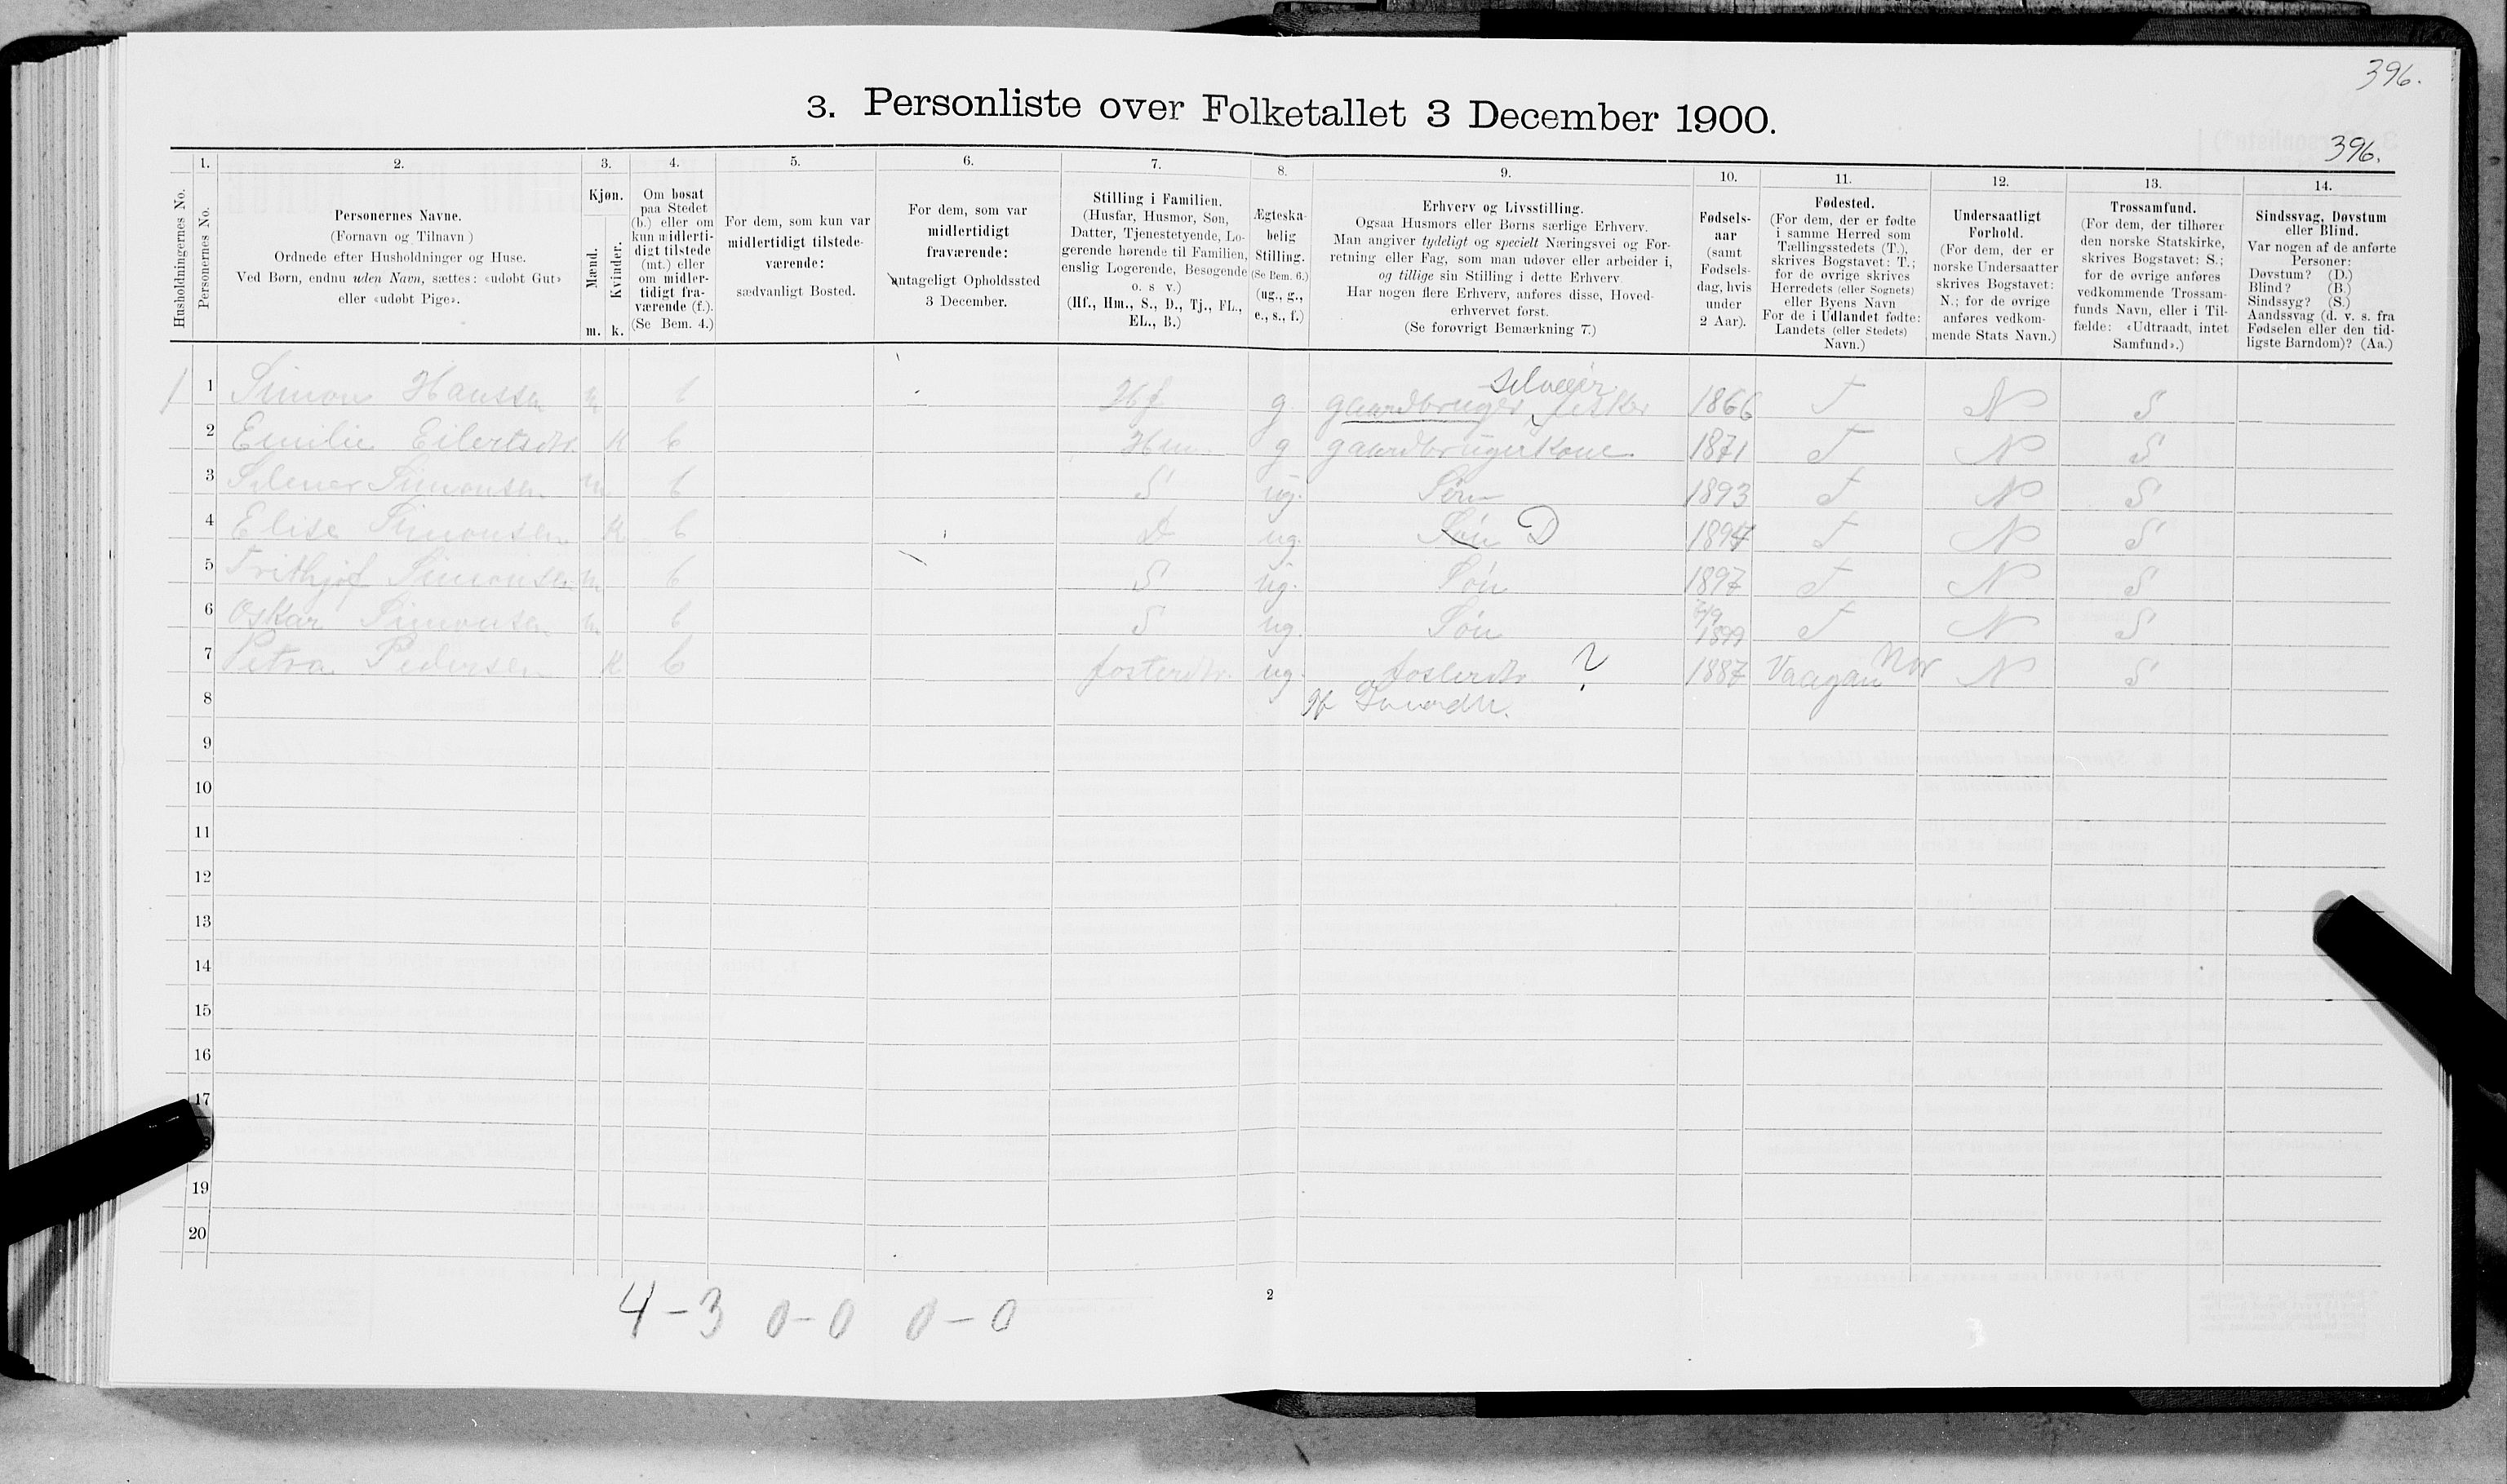 396.
3. Personliste over Folketallet 3 December 1900.
396.
1. 2. 3. 4. 5. 6. 7. 8. 9. 10. 11. 12. 13. 14.
Husholdningernes No.
Personernes No.
Personernes Navne.
(Fornavn og Tilnavn)
Ordnede efter Husholdninger og Huse.
Ved Børn, endnu uden Navn, sættes: «udøbt Gut»
eller «udøbt Pige».
Kjøn.
Mænd.
Kvinder.
m. k.
Om bosat
paa Stedet
(b.) eller om
kun midlerti-
digt tilstede
(mt.) eller
om midler-
tidigt fra-
værende (f.).
(Se Bem. 4.)
For dem, som kun var
midlertidigt tilstede-
værende:
sædvanligt Bosted.
For dem, som var
midlertidigt
fraværende:
antageligt Opholdssted
3 December.
Stilling i Familien.
(Husfar, Husmor, Søn,
Datter, Tjenestetyende, Lo-
gerende hørende til Familien,
enslig Logerende, Besøgende
o. s v.)
(Hf., Hm., S., D., Tj., FL.,
EL., B.)
Ægteska-
belig
Stilling.
(Se Bem. 6.)
(ug., g.,
e., s., f.)
Erhverv og Livsstilling.
Ogsaa Husmors eller Børns særlige Erhverv.
Man angiver tydeligt og specielt Næringsvei og For-
retning eller Fag, som man udøver eller arbeider i,
og tillige sin Stilling i dette Erhverv.
Har nogen flere Erhverv, anføres disse, Hoved-
erhvervet først.
(Se forøvrigt Bemærkning 7.)
Fødsels-
aar
(samt
Fødsels-
dag, hvis
under
2 Aar).
Fødested.
(For dem, der er fødte
i samme Herred som
Tællingsstedets (T.),
skrives Bogstavet: T.;
for de øvrige skrives
Herredets (eller Sognets)
eller Byens Navn
For de i Udlandet fødte:
Landets (eller Stedets)
Navn.)
Undersaatligt
Forhold.
(For dem, der er
norske Undersaatter
skrives Bogstavet:
N.; for de øvrige
anføres vedkom-
mende Stats Navn.)
Trossamfund.
(For dem, der tilhører
den norske Statskirke,
skrives Bogstavet: S.;
for de øvrige anføres
vedkommende Trossam-
funds Navn, eller i Til-
fælde: «Udtraadt, intet
Samfund».)
Sindssvag, Døvstum
eller Blind.
Var nogen af de anførte
Personer:
Døvstum? (D.)
Blind? (B.)
Sindssyg? (S.)
Aandssvag (d. v. s. fra
Fødselen eller den tid-
ligste Barndom)? (Aa.)
selveier
1 Simon Hanssen m b Hf g gaardbruger, fisker 1866 T N S
2 Emilie Eilertsdtr. K b Hm g gaardbrugerkone 1871 T N S
3 Simonsen m b S ug. Søn 1893 T N S
4 Elise Simonsen K b D ug. Søn D 1894 T N S
5 Frithjof Simonsen m b S ug. Søn 1897 T N S
6 Oskar Simonsen m b S ug. Søn 1899 T N S
7 Petra Pedersen K b fosterdtr. ug. fosterdtr ? 1887 Vaagan N S
8
9
10
11
12
13
14
15
16
17
19
20
4-3 0-0 0-0
2